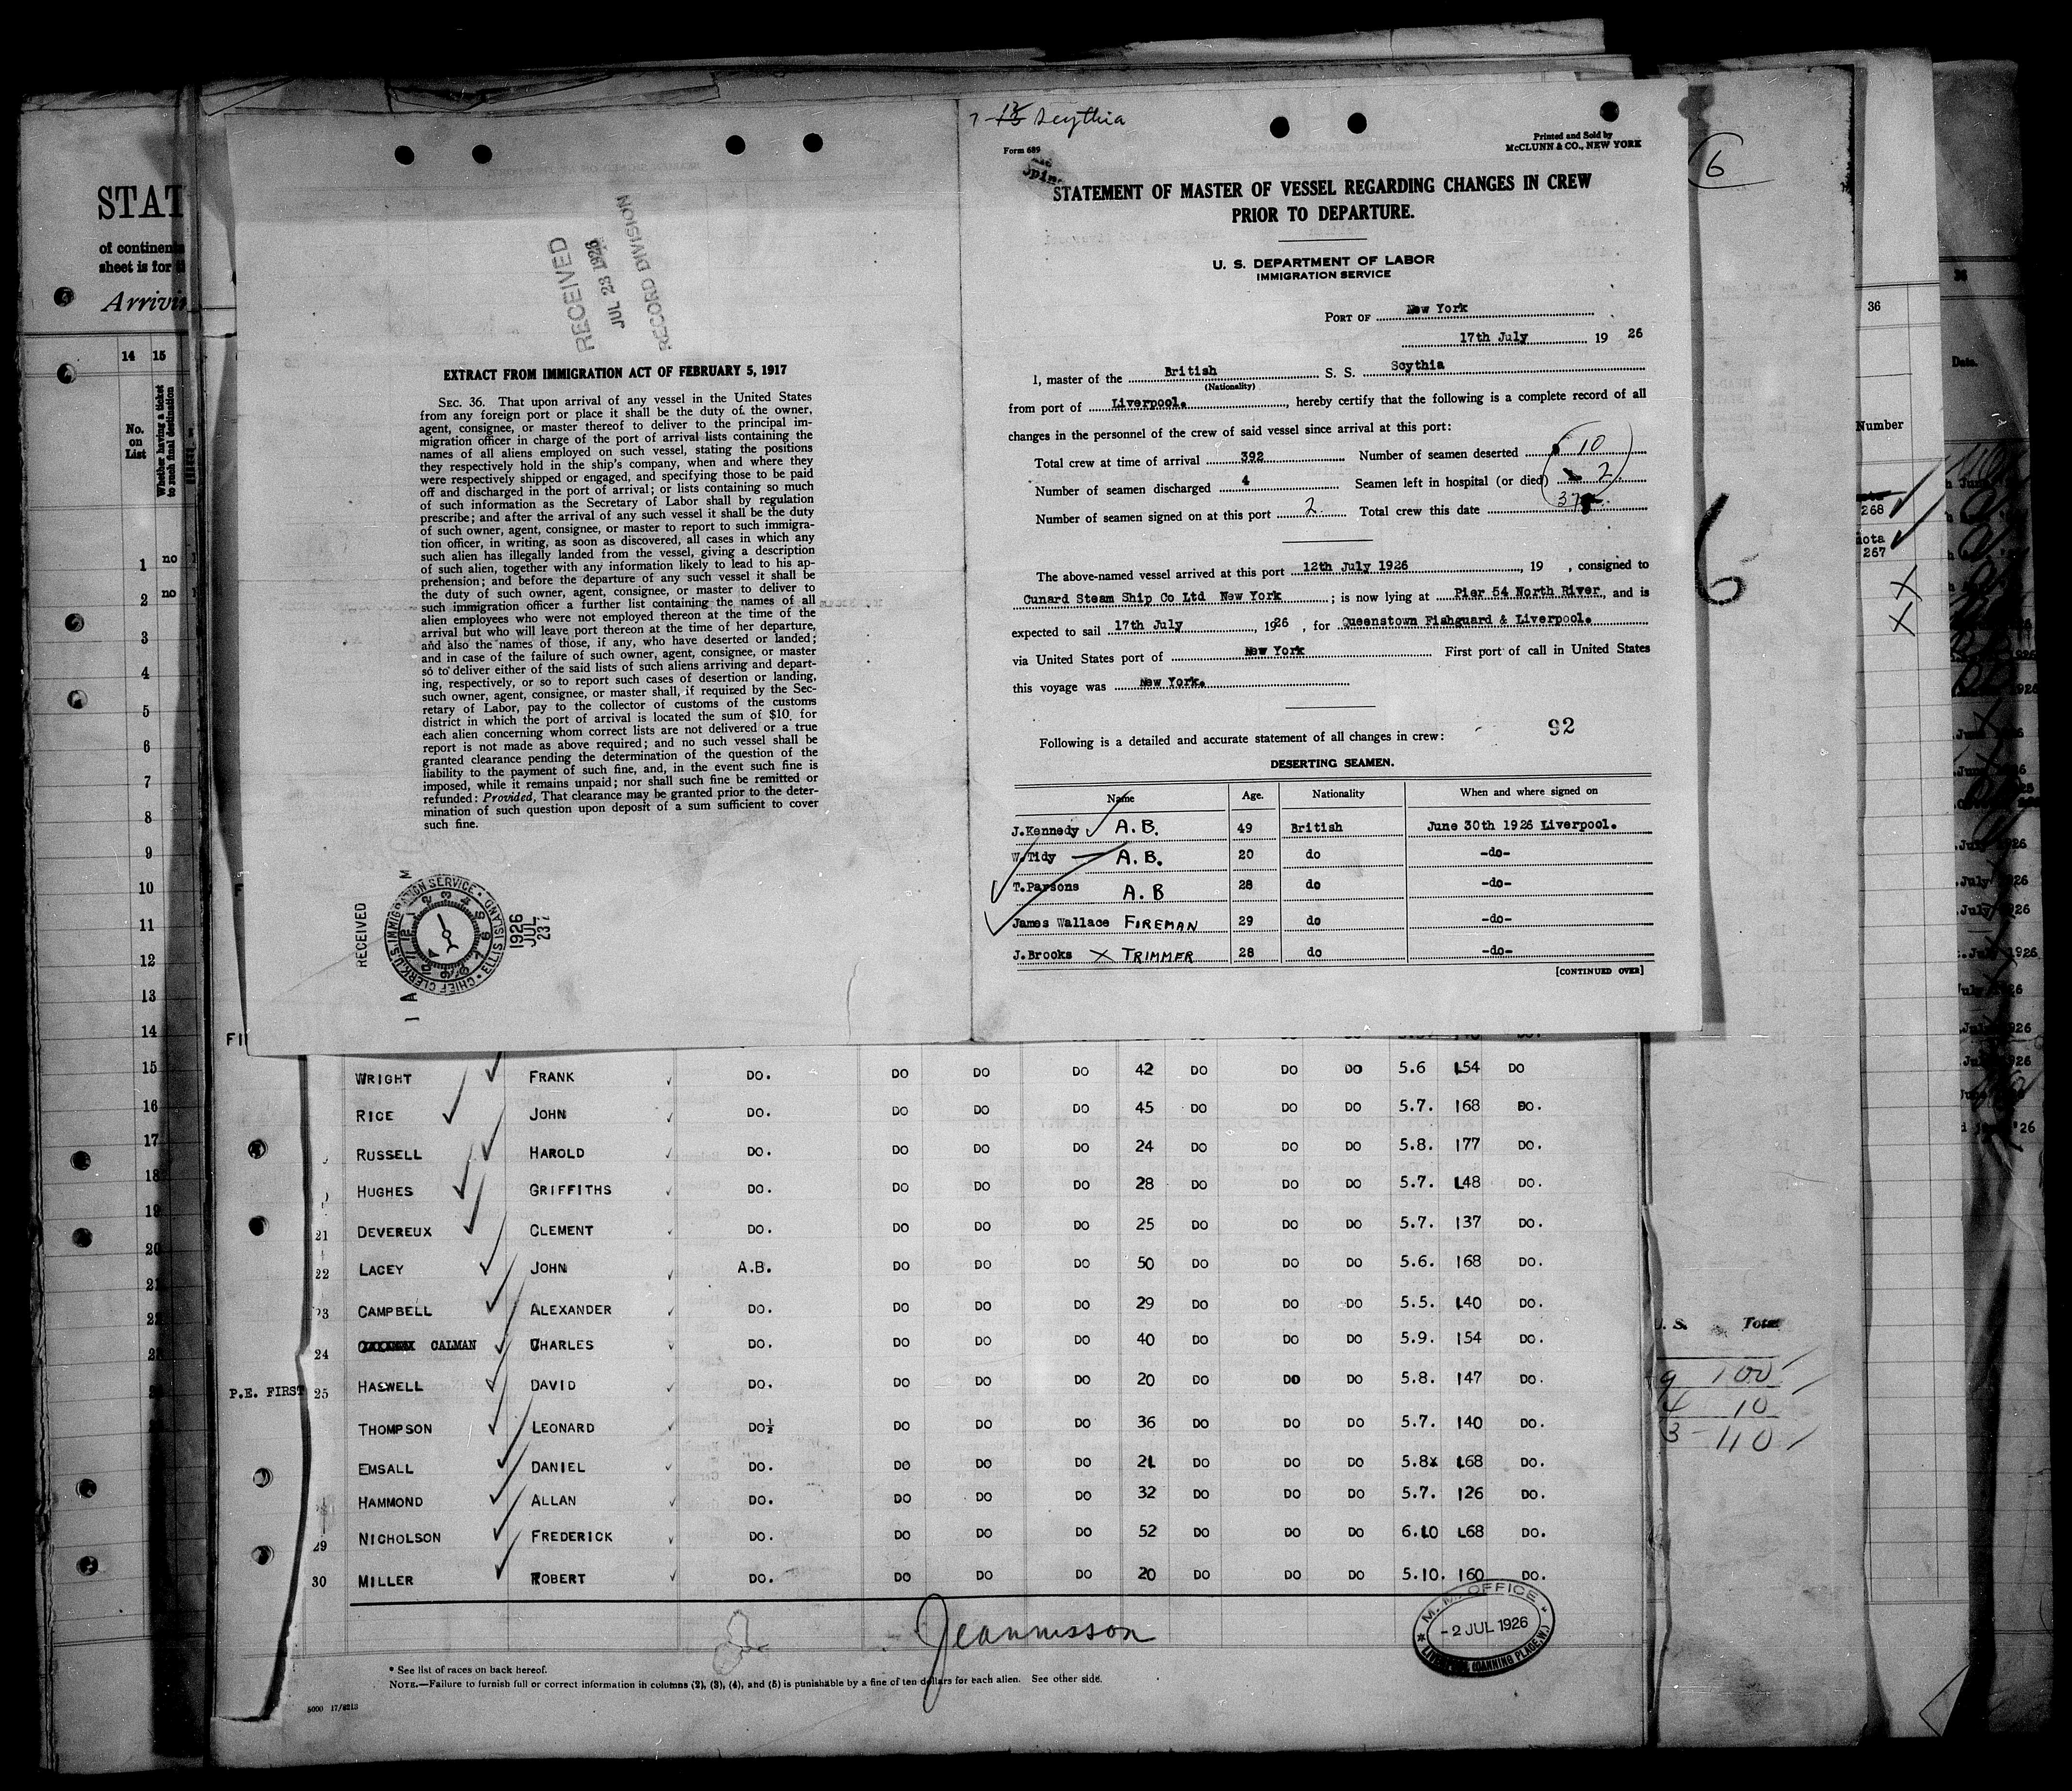 STAT
of continen
sheet is for
Arrivin
14 15
No.
on
List
Whether having a ticket
to such final destination
1 no
2 no
3
4
5
6
7
8
9
10
11
12
13
14
15
16
17
18
19
20
RECEIVED
JUL 23 1926
RECORD DIVISION
EXTRACT FROM IMMIGRATION ACT OF FEBRUARY 5, 1917
SEC. 36. That upon arrival of any vessel in the United States
from any foreign port or place it shall be the duty of the owner,
agent, consignee, or master thereof to deliver to the principal im-
migration officer in charge of the port of arrival lists containing the
names of all aliens employed on such vessel, stating the positions
they respectively hold in the ship's company, when and where they
were respectively shipped or engaged, and specifying those to be paid
off and discharged in the port of arrival; or lists containing so much
of such information as the Secretary of Labor shall by regulation
prescribe; and after the arrival of any such vessel it shall be the duty
of such owner, agent, consignee, or master to report to such immigra-
tion officer, in writing, as soon as discovered, all cases in which any
such alien has illegally landed from the vessel, giving a description
of such alien, together with any information likely to lead to his ap-
prehension; and before the departure of any such vessel it shall be
the duty of such owner, agent, consignee, or master to deliver to
such immigration officer a further list containing the names of all
alien employees who were not employed thereon at the time of the
arrival but who will leave port thereon at the time of her departure,
and also the names of those, if any, who have deserted or landed;
and in case of the failure of such owner, agent, consignee, or master
so to deliver either of the said lists of such aliens arriving and depart-
ing, respectively, or so to report such cases of desertion or landing,
such owner, agent, consignee, or master shall, if required by the Sec-
retary of Labor, pay to the collector of customs of the customs
district in which the port of arrival is located the sum of $10 for
each alien concerning whom correct lists are not delivered or a true
report is not made as above required; and no such vessel shall be
granted clearance pending the determination of the question of the
liability to the payment of such fine, and, in the event such fine is
imposed, while it remains unpaid; nor shall such fine be remitted or
refunded: Provided, That clearance may be granted prior to the deter-
mination of such question upon deposit of a sum sufficient to cover
such fine.
RECEIVED
CHIEF CLERK, U.S. IMMIGRATION SERVICE · ELLIS ISLAND
1926
JUL
23
Scythia
Form 689
Printed and Sold by
McCLUNN & CO., NEW YORK
STATEMENT OF MASTER OF VESSEL REGARDING CHANGES IN CREW
PRIOR TO DEPARTURE.
U. S. DEPARTMENT OF LABOR
IMMIGRATION SERVICE
PORT OF New York
17th July 19 26
I, master of the British S. S. Scythia
(Nationality)
from port of Liverpool. , hereby certify that the following is a complete record of all
changes in the personnel of the crew of said vessel since arrival at this port:
Total crew at time of arrival 392 Number of seamen deserted 10
Number of seamen discharged 4 Seamen left in hospital (or died) 2
Number of seamen signed on at this port 2. Total crew this date
The above-named vessel arrived at this port 12th July 1926 , 19 , consigned to
Cunard Steam Ship Co Ltd New York ; is now lying at Pier 54 North River, and is
expected to sail 17th July , 1926 , for Queenstown Fishguard & Liverpool.
via United States port of New York First port of call in United States
this voyage was New York.
92
Following is a detailed and accurate statement of all changes in crew:
DESERTING SEAMEN.
Name Age. Nationality When and where signed on
J.Kennedy A.B. 49 British June 30th 1926 Liverpool.
W.Tidy A.B. 20 do -do-
T.Parsons A.B 28 do -do-
James Wallace FIREMAN 29 do -do-
J.Brooks X TRIMMER 28 do -do-
[CONTINUED OVER]
WRIGHT FRANK DO. DO DO DO 42 DO DO DO 5.6 154 DO
RICE JOHN DO. DO DO DO 45 DO DO DO 5.7. 168 DO.
RUSSELL HAROLD DO. DO DO DO 24 DO DO DO 5.8. 177 DO.
HUGHES GRIFFITHS DO. DO DO DO 28 DO DO DO 5.7. 148 DO.
21 DEVEREUX CLEMENT DO. DO DO DO 25 DO DO DO 5.7. 137 DO.
22 LACEY JOHN A.B. DO DO DO 50 DO DO DO 5.6. 168 DO.
23 CAMPBELL ALEXANDER DO. DO DO DO 29 DO DO DO 5.5. 140 DO.
24 CALMAN CHARLES DO. DO DO DO 40 DO DO DO 5.9. 154 DO.
P.E. FIRST 25 HASWELL DAVID DO. DO DO DO 20 DO DO DO 5.8. 147 DO.
THOMPSON LEONARD DO½ DO DO DO 36 DO DO DO 5.7. 140 DO.
EMSALL DANIEL DO. DO DO DO 21 DO DO DO 5.8x 168 DO.
HAMMOND ALLAN DO. DO DO DO 32 DO DO DO 5.7. 126 DO.
29 NICHOLSON FREDERICK DO. DO DO DO 52 DO DO DO 6.10 168 DO.
30 MILLER ROBERT DO. DO DO DO 20 DO DO DO 5.10. 160 DO.
M. M. OFFICE
-2 JUL 1926
* See list of races on back hereof.
NOTE.—Failure to furnish full or correct information in columns (2), (3), (4), and (5) is punishable by a fine of ten dollars for each alien. See other side.
5000 17/8213
6
6
36
Number
268
267
X
X
U. S. Total
9 100
4 10
3 110
36
Date.